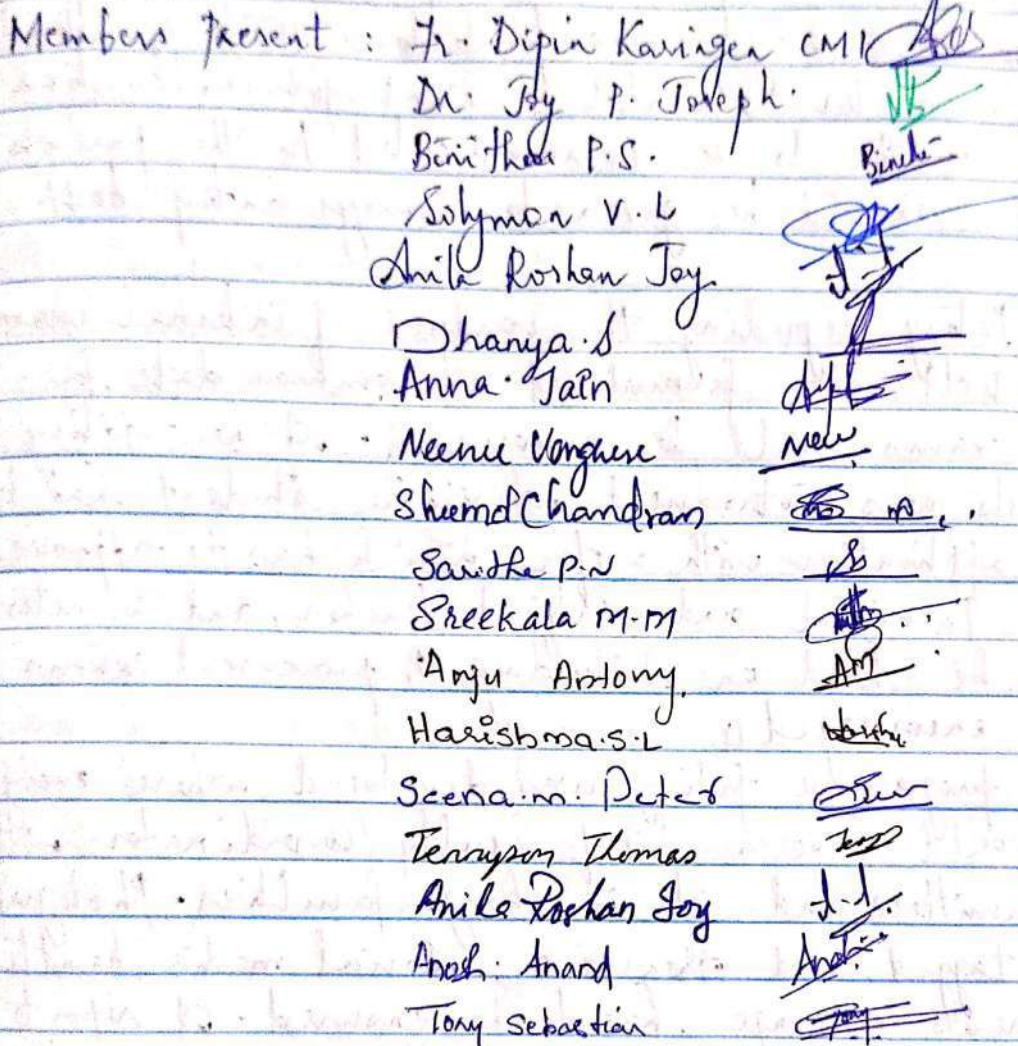 Members Present : Fr. Dipin Karingen CMI
Dr. Joy P. Joseph.
Binitha P.S. Binitha
Solymon V.L
Anila Roshan Joy.
Dhanya.S
Anna Jain
Neenu Varghese Neenu
Chandran
Saritha P.N
Sreekala M.M
Anju Antony. AM
Harishma.S.L
Seena.M. Peter
Tennyson Thomas
Anila Roshan Joy
Anand
Tony Sebastian Tony